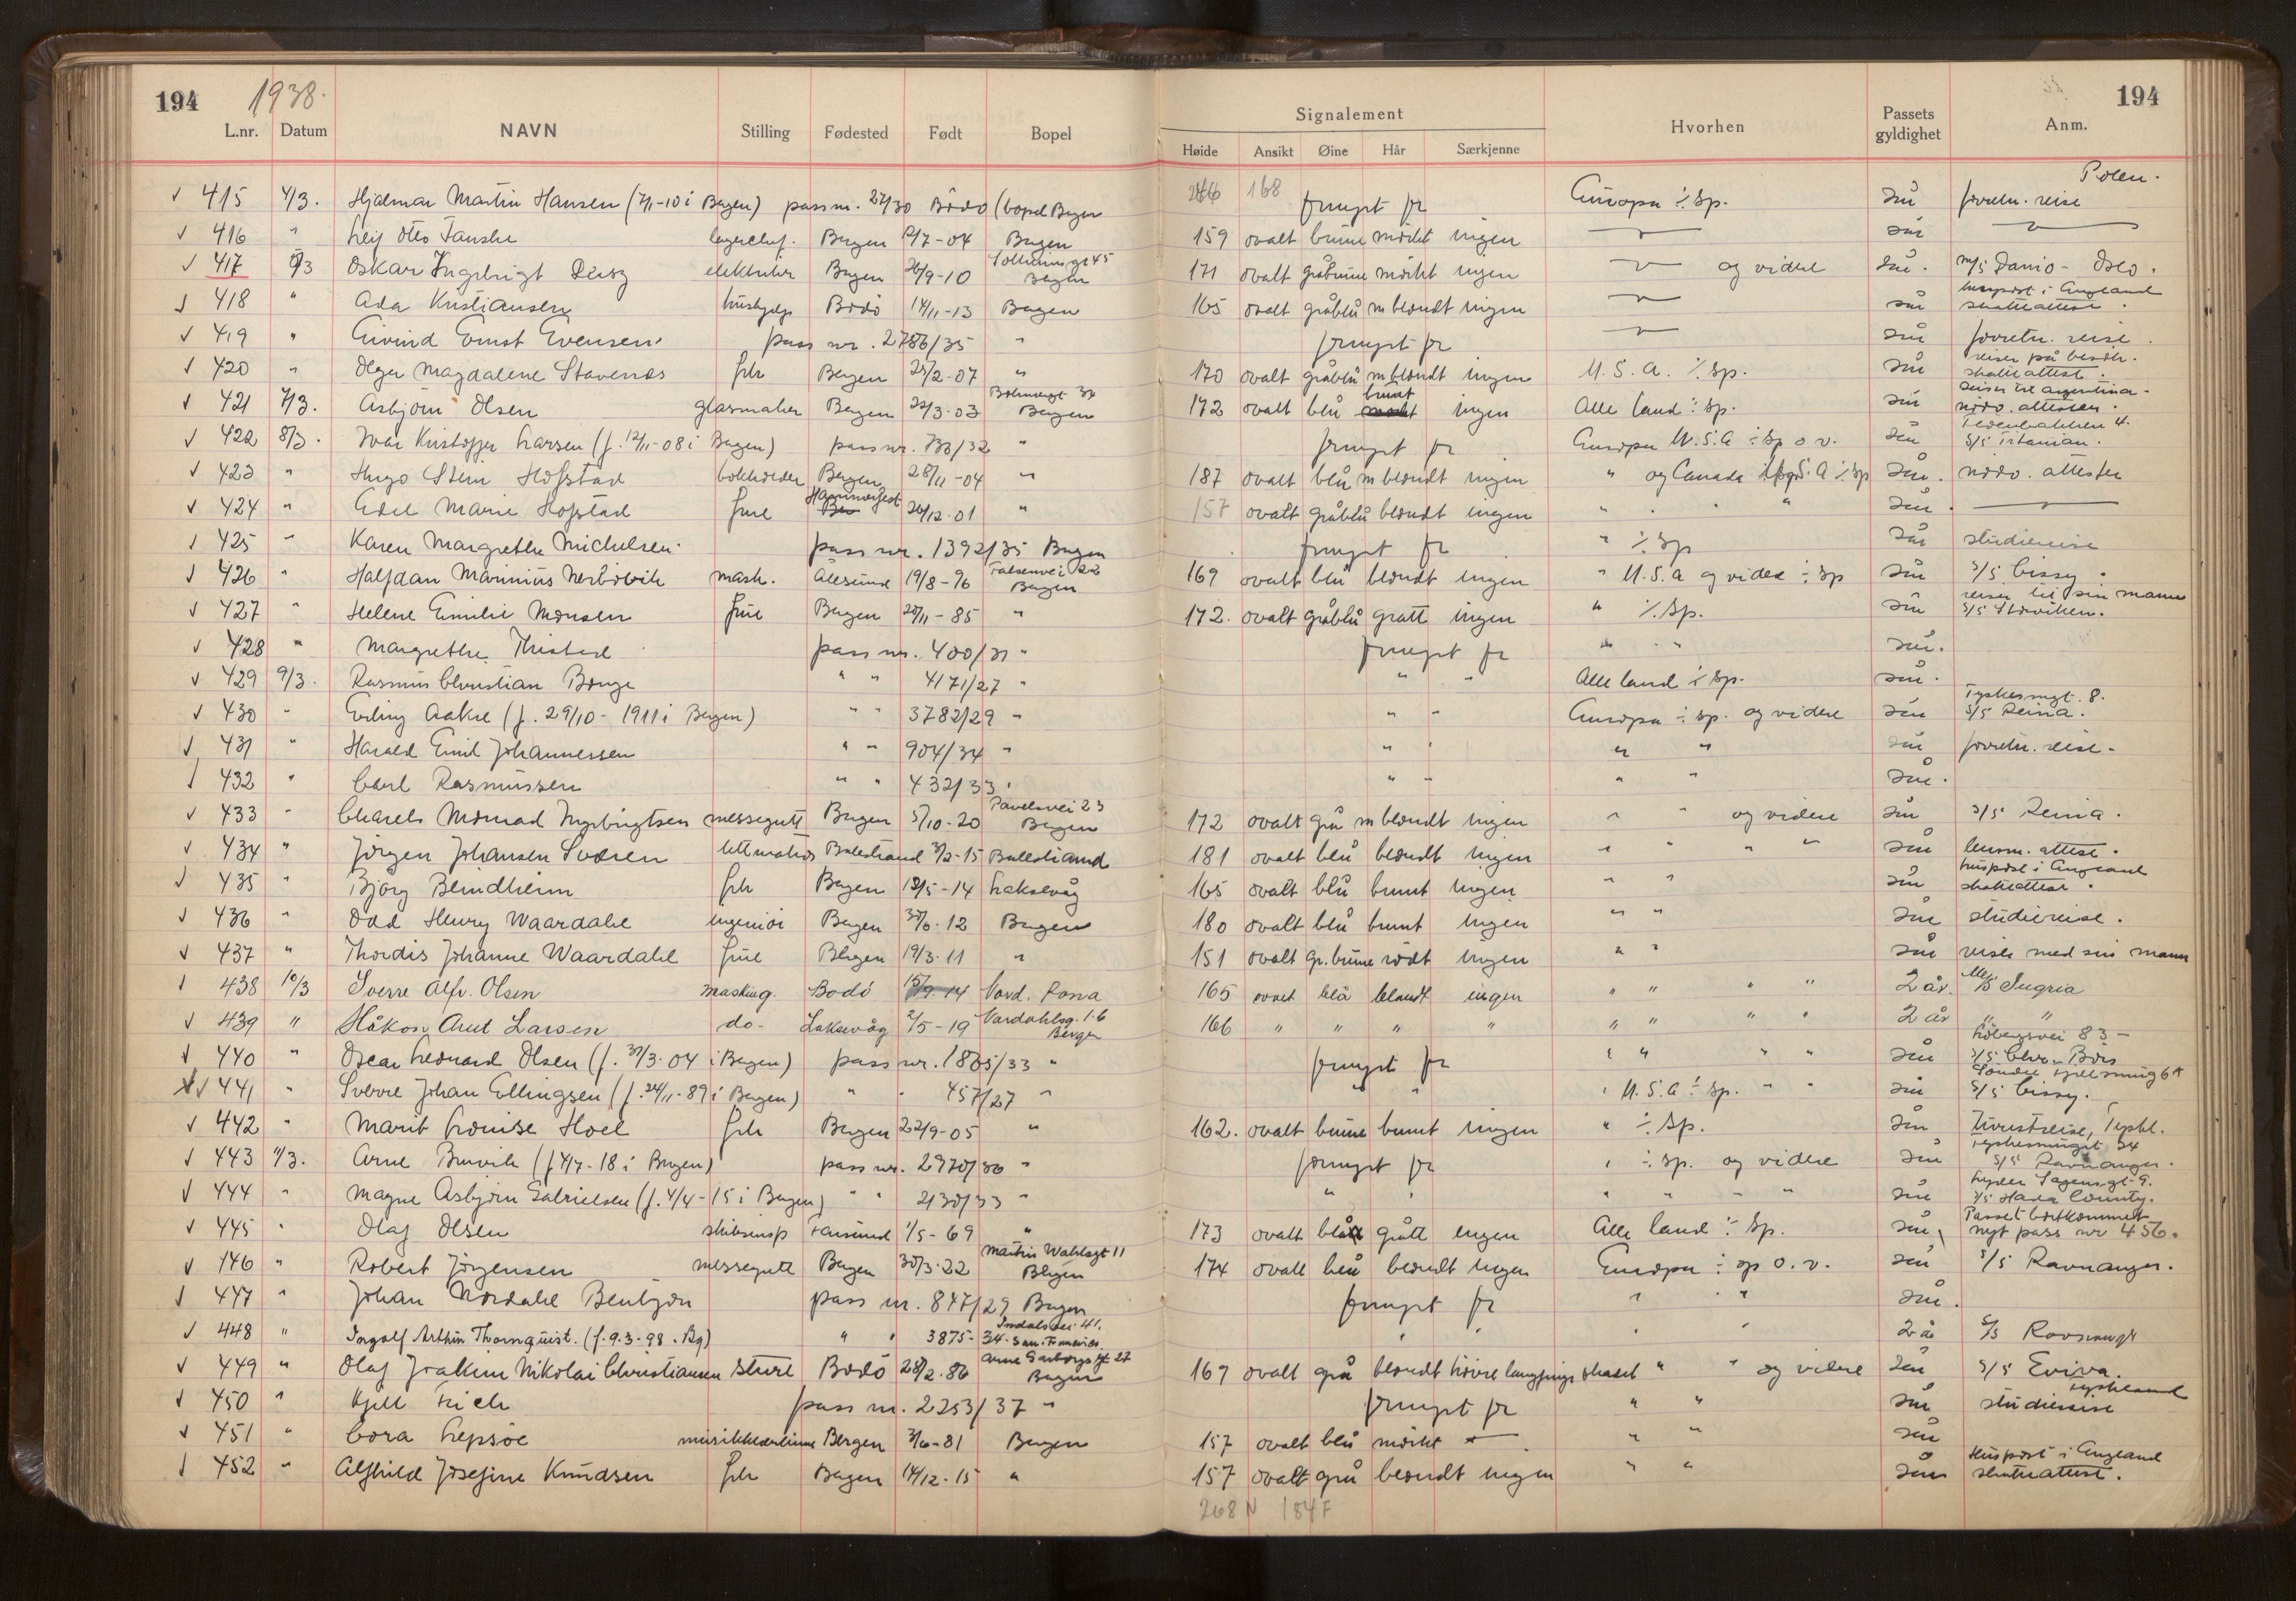 194 1938. 194
Signalement
L.nr. Datum NAVN Stilling Fødested Født Bopel Høide Ansikt Øine Hår Særkjenne Hvorhen Passets gyldighet Anm.
Polen.
415 4/3. Hjalmar Martin Hansen (7/1-10 i Bergen) pass nr. 27/30 Bodö (bopel Bergen 168 fornyet for Europa ÷ Sp. 2 år forretn. reise
416 " Leif Otto Fanske lagerchef. Bergen 2/7-04 Bergen 159 ovalt brune mörkt ingen 2 år
417 5/3 Oskar Ingebrigt elektriker Bergen 26/9-10 Bergen 171 ovalt gråbrune mörkt ingen og videre 2 år. m/s Danio - Oslo.
huspost i England
418 " Ada Kristiansen hushjelp Bodö 14/11-13 Bergen 165 ovalt gråblå m blondt ingen 2 år skatteattest.
419 " Eivind Ernst Evensen pass nr. 2786/35 " fornyet for 2 år forretn. reise.
420 " Olga Magdalene Stavenes frk Bergen 25/2-07 " 170 ovalt gråblå m blondt ingen U.S.A. ÷ Sp. 2 år reiser på besök. skatteattest.
421 7/3. Asbjörn Olsen glassmaker Bergen 22/3-03 Bergen 172 ovalt blå brunt ingen Alle land ÷ Sp. 2 år reiser til Argentina - nödv. attester.
422 8/3. Ivar Kristoffer Larsen (f. 12/11-08 i Bergen) pass nr. 733/32 " fornyet for Europa U.S.A ÷ Sp o. v. 2 år s/s Titanian.
423 " Hugo Stein Hofstad bokholder Bergen 28/11-04 " 187 ovalt blå m blondt ingen " og Canada U.S.A ÷ Sp 2 år. nödv. attester
424 " Edel Marie Hofstad frue Hammerfest 26/12-01 " 157 ovalt gråblå blondt ingen " 2 år
425 " Karen Margrethe Michelsen pass nr. 1392/35 Bergen fornyet for " ÷ Sp 2 år studiereise
426 " Halfdan Marinius Nerbövik mask. Ålesund 19/8-96 Falsensvei 22 Bergen 169 ovalt blå blondt ingen " U.S.A og videre ÷ Sp 2 år s/s Cissy.
reiser til sin mann
427 " Helene Emilie Monsen frue Bergen 28/11-85 " 172. ovalt gråblå grått ingen " ÷ Sp. 2 år s/s Storviken.
428 " Margrethe Thistad pass nr. 400/31 " fornyet for " " 2 år.
429 9/3. Rasmus Christian Börge " " 4171/27 " " " Alle land ÷ Sp. 2 år.
430 " Erling Aakre (f. 29/10-1911 i Bergen) " " 3782/29 " " " Europa ÷ Sp. og videre 2 år Tyskesmugt. 8. s/s Reina.
431 " Harald Emil Johannessen " " 904/34 " " " " " 2 år forretn. reise.
432 " Carl Rasmussen " " 432/33 " " " " " 2 år.
433 " Charels Monrad Ingebrigtsen messegutt Bergen 5/10-20 Paveelsvei 23 Bergen 172 ovalt grå m blondt ingen " " og videre 2 år s/s Reina.
434 " Jörgen Johansen Sværen lettmatros Balestrand 3/2-15 Balestrand 181 ovalt blå blondt ingen " " " " 2 år lensm. attest.
435 " Bjørg Blindheim frk Bergen 18/5-14 Laksevåg 165 ovalt blå brunt ingen " " 2 år huspost i England skatteattest.
436 " Odd Henry Waardahl ingeniör Bergen 30/6-12 Bergen 180 ovalt blå brunt ingen " " 2 år studiereise.
437 " Thordis Johanne Waardahl frue Bergen 19/3-11 " 151 ovalt gr. brune rödt ingen " " 2 år reiser med sin mann
438 10/3 Sverre Alfr. Olsen masking. Bodö 15/9-14 165 ovalt blå blondt ingen " " " " 2 år. M/s Ingria
439 " Håkon Arnt Larsen do- Laksevåg 2/5-19 Vardahlsg. 16 Bergen 166 " " " " " " " " 2 år " "
440 " Oscar Leonard Olsen (f. 30/3-04 i Bergen) pass nr. 1865/33 " fornyet for " " " " 2 år s/s Chr. Bors
441 " Sverre Johan Ellingsen (f. 24/11-89 i Bergen) " " 457/27 " " " " U.S.A ÷ Sp. " " 2 år s/s Cissy.
442 " Marit Louise Hoel frk Bergen 22/9-05 " 162. ovalt brune brunt ingen " ÷ Sp. 2 år Turistreise, Tyskl.
443 11/3. Arne Brurvik (f 4/7-18 i Bergen) pass nr. 2970/36 " fornyet for " ÷ Sp. og videre 2 år s/s Ravnanger.
444 " Magne Asbjörn Gabrielsen (f. 4/4-15 i Bergen) " " 2130/33 " " " " " " " 2 år Lyder Sagensgt. 9. s/s Hada County.
445 " Olaf Olsen skibsinsp Farsund 1/5-69 " 173 ovalt blå grått ingen Alle land ÷ Sp. 2 år Passet bortkommet nyt pass nr 456.
446 " Robert Jörgensen messegutt Bergen 30/3-22 Martin Wahlsgt 11 Bergen 174 ovalt blå blondt ingen Europa ÷ Sp o. v. 2 år s/s Ravnanger.
447 " Johan Nordahl Bentzon pass nr. 847/29 Bergen fornyet for " " 2 år.
448 " Ingolf Arthur Thornquist. (f. 9.3-98. Bg) " " 3875-34. 2 år
449 " Olaf Joakim Nikolai Christiansen stuert Bodö 28/2-86 Arne Garborgsgt 27 Bergen 167 ovalt grå blondt höire langfinger skadet " " og videre 2 år s/s Eviva.
450 " Kjell Friele pass nr. 2253/37 " fornyet for " " 2 år studiereise Tyskland
451 " Cora Lepsøe musikklærerinne Bergen 3/6-81 Bergen 157 ovalt blå mörkt " " 2 år
452 " Alfhild Josefine Knudsen frk Bergen 14/12-15 " 157 ovalt grå blondt ingen " " 2 år huspost i England skatteattest.
268 N 184 F